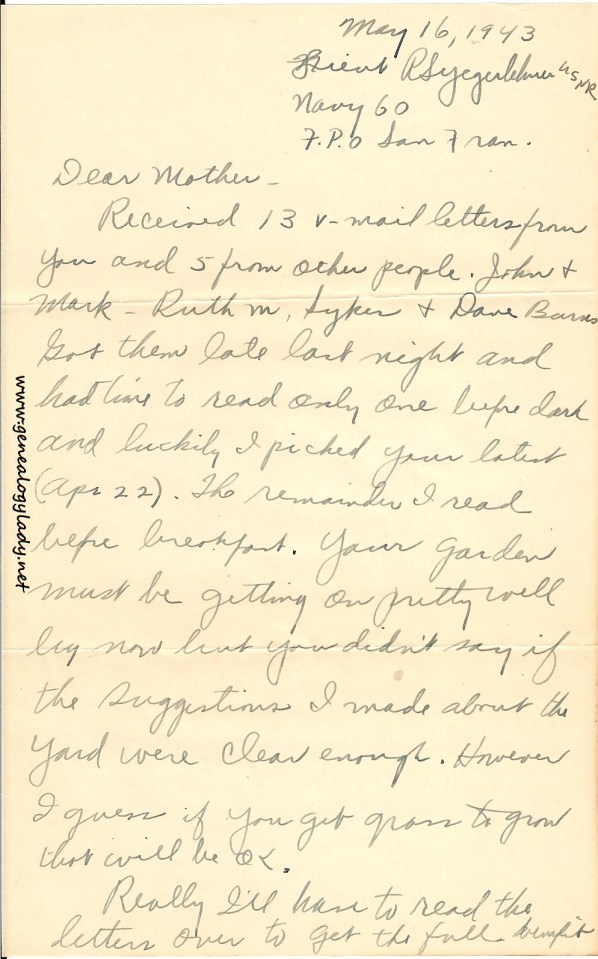 May 16, 1943
Lieut R S Yegerlehner USNR
Navy 60
F.P.O San Fran.
Dear Mother -
Received 13 v-mail letters from
you and 5 from other people. John +
Mark - Ruth M, Sykes + Dave Burns
Got them late last night and
had time to read only one before dark
and luckily I picked your latest
(Apr 22). The remainder I read
before breakfast. Your garden
must be getting on pretty well
by now but you didn't say if
the suggestions I made about the
yard were clear enough. However
I guess if you get grass to grow
that will be OK.
Really I'll have to read the
letters over to get the full benefit
www.genealogylady.net